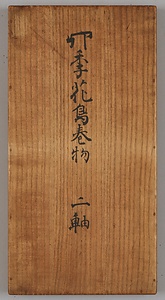 四季花鳥巻物 二軸